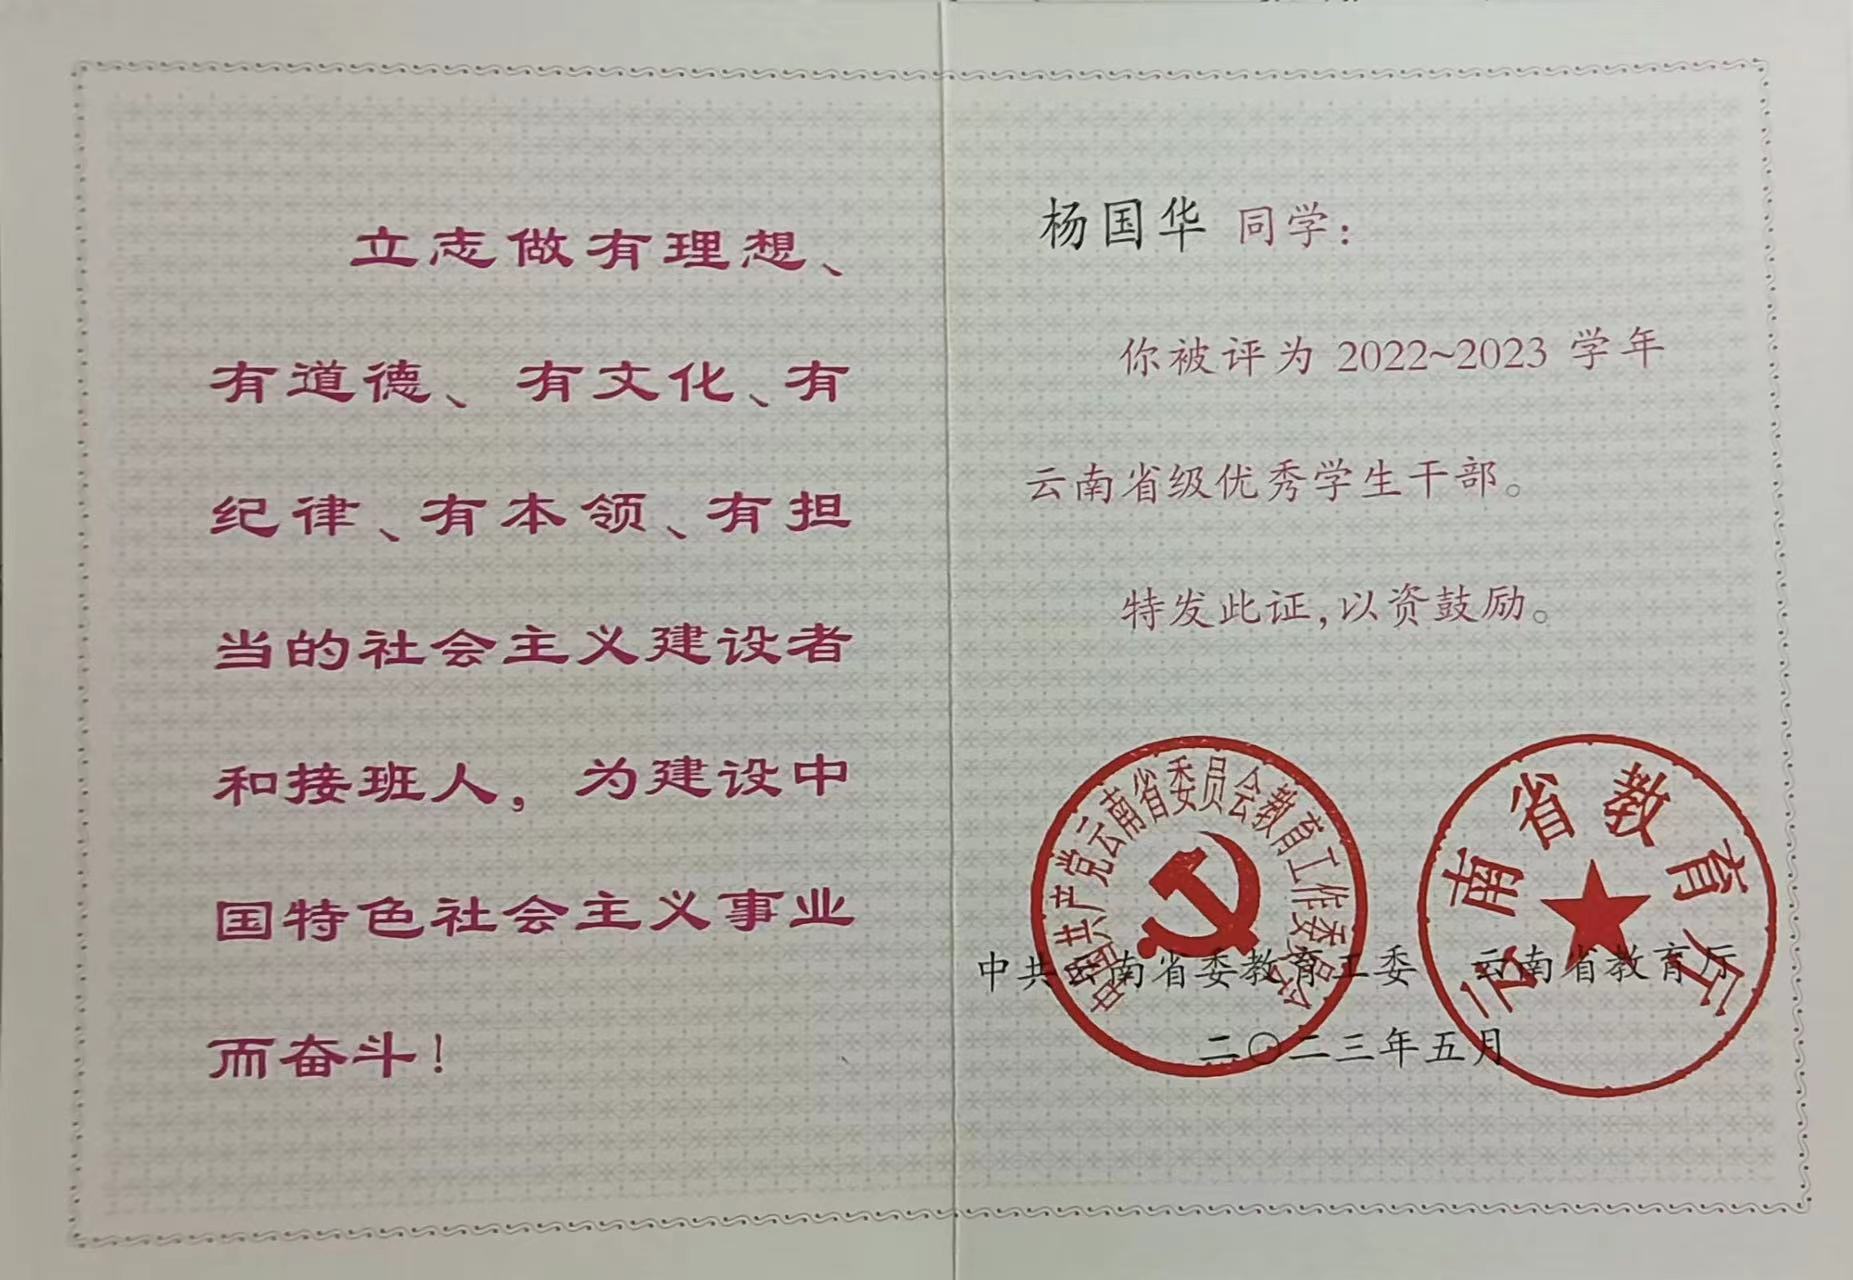 立志做有理想、
有道德、有文化、有
纪律、有本领、有担
当的社会主义建设者
和接班人，为建设中
国特色社会主义事业
而奋斗！
杨国华 同学：
你被评为 2022~2023 学年
云南省级优秀学生干部。
特发此证，以资鼓励。
中国共产党云南省委员会教育工作委员会
云南省教育厅
中共云南省委教育工委 云南省教育厅
二〇二三年五月